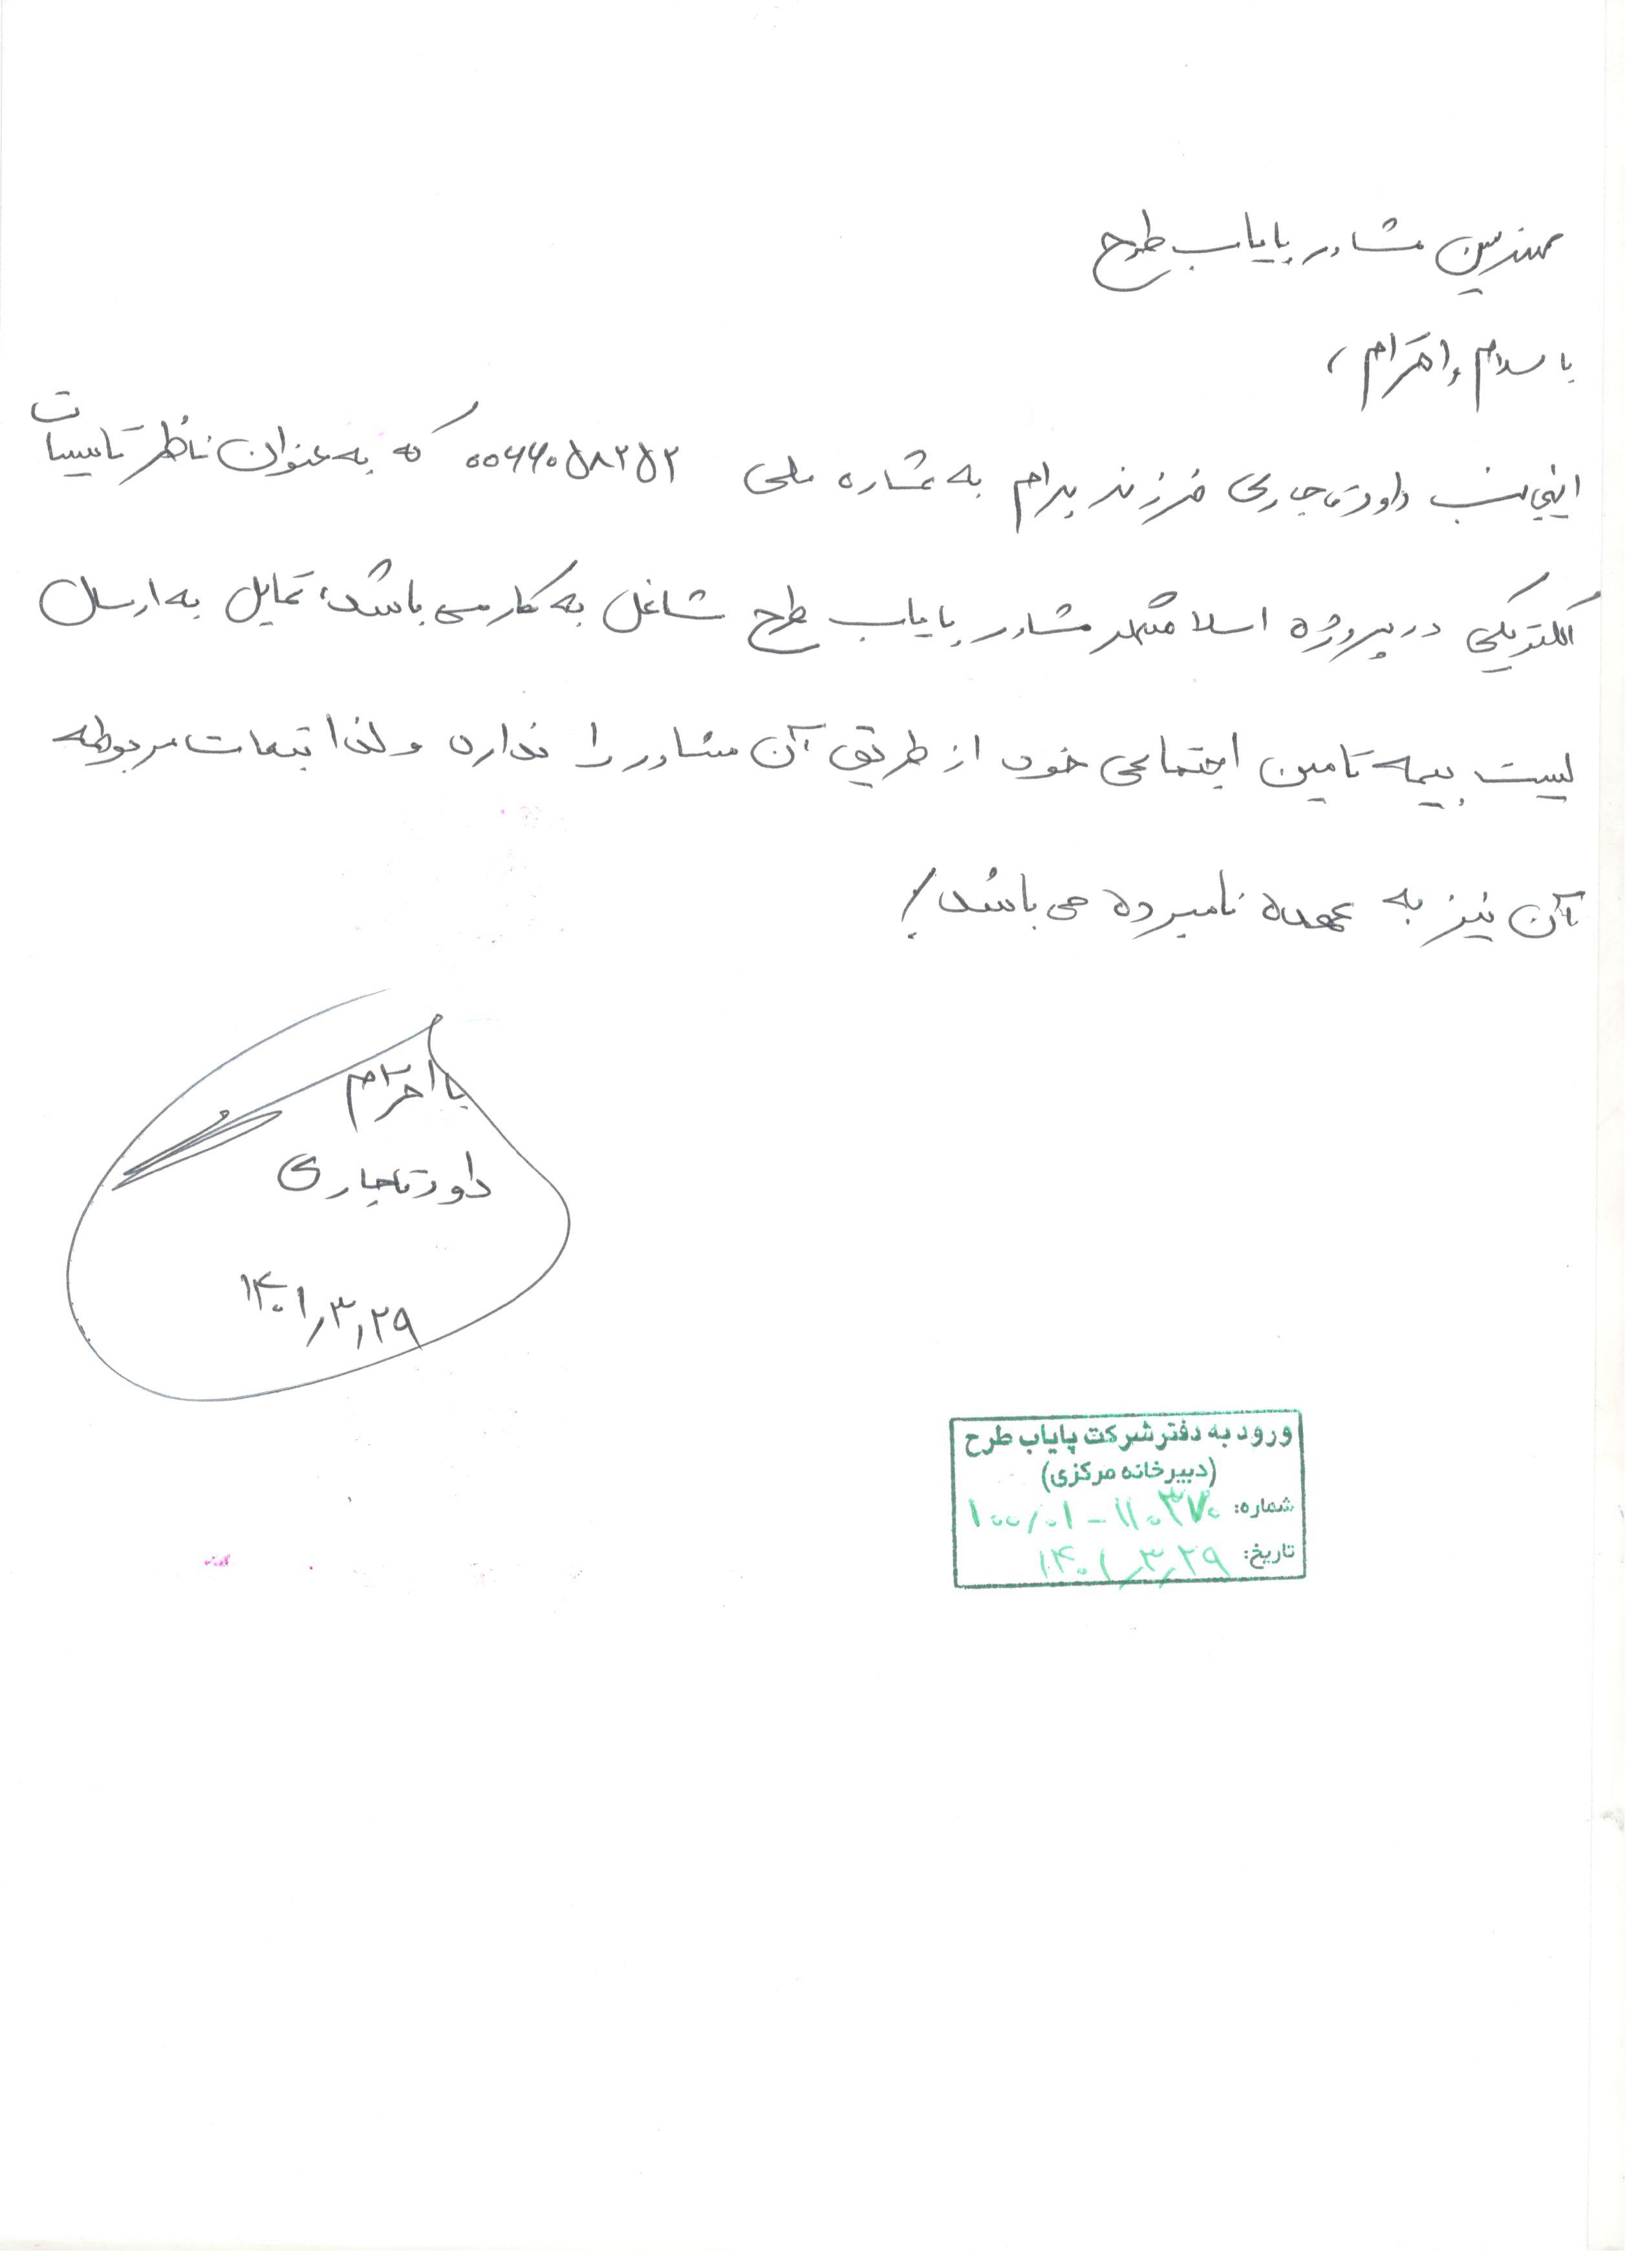 مهندسین مشاور پایاب طرح
با سلام و احترام،
اینجانب داود تاجاری فرزند پدرام به شماره ملی ۰۰۶۶۰۵۸۲۵۲ که به عنوان ناظر تاسیسات
الکتریکی در پروژه اسلامشهر مشاور پایاب طرح شاغل به کار می باشد، تمایل به ارسال
لیست بیمه تامین اجتماعی خود از طریق آن مشاور را ندارد و لذا تبعات مربوطه
آن نیز به عهده نامبرده می باشد/.
با احترام
داود تاجاری
۱۴۰۱٫۳٫۲۹
ورود به دفتر شرکت پایاب طرح
(دبیرخانه مرکزی)
شماره: ۱۰۰/۰۱-۱۱۰۳۷۰
تاریخ: ۱۴۰۱٫۳٫۲۹